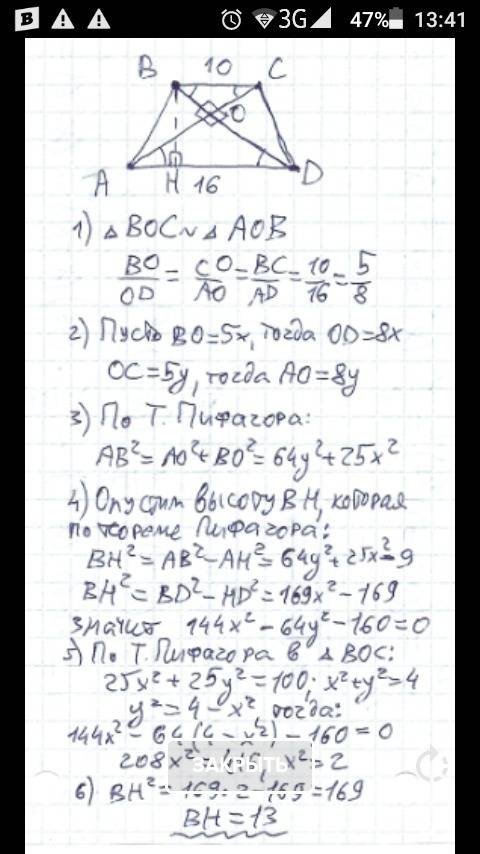 B 3G 47% 13:41
B 10 C
O
A H 16 D
1) △ BOC ~ △ AOB
BO/OD = CO/AO = BC/AD = 10/16 = 5/8
2) Пусть BO=5x, тогда OD=8x
OC=5y, тогда AO=8y
3) По Т. Пифагора:
AB²=AO²+BO²=64y²+25x²
4) Опустим высоту BH, которая
по теореме Пифагора:
BH²=AB²-AH²=64y²+25x²-9
BH²=BD²-HD²=169x²-169
значит 144x²-64y²-160=0
5) По Т. Пифагора в △ BOC:
25x²+25y²=100; x²+y²=4
y²=4-x², тогда:
144x²-64(4-x²)-160=0
208x² x²=2
ЗАКРЫТЬ
6) BH²=169·2-169=169
BH=13